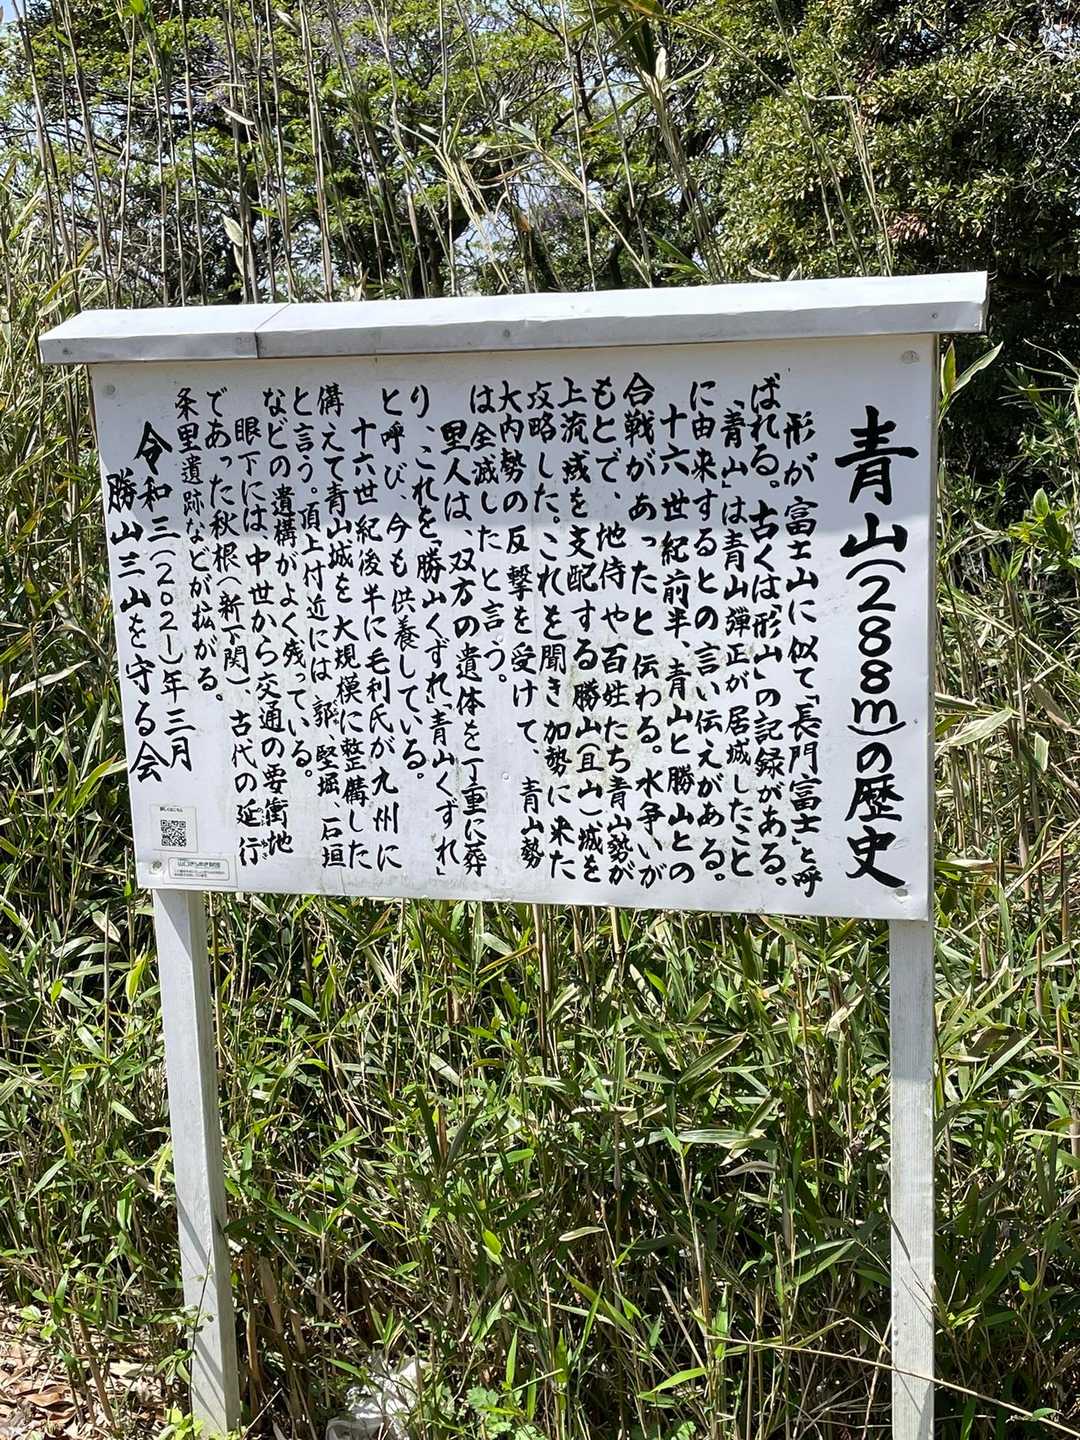 青山(288m)の歴史
形が富士山に似て「長門富士」と呼
ばれる。古くは「形山」の記録がある。
「青山」は青山弾正が居城したこと
に由来するとの言い伝えがある。
十六世紀前半、青山と勝山との
合戦があったと伝わる。水争いが
もとで、地侍や百姓たち青山勢が
上流域を支配する勝山(且山)城を
攻略した。これを聞き加勢に来た
大内勢の反撃を受けて、青山勢
は全滅したと言う。
里人は、双方の遺体を丁重に葬
り、これを「勝山くずれ」「青山くずれ」
と呼び、今も供養している。
十六世紀後半に毛利氏が九州に
備えて青山城を大規模に整備した
と言う。頂上付近には、郭、竪堀、石垣
などの遺構がよく残っている。
眼下には、中世から交通の要衝地
であった秋根(新下関)、古代の延行
条里遺跡などが拡がる。
令和三(2021)年三月
勝山三山を守る会
詳しくはこちら